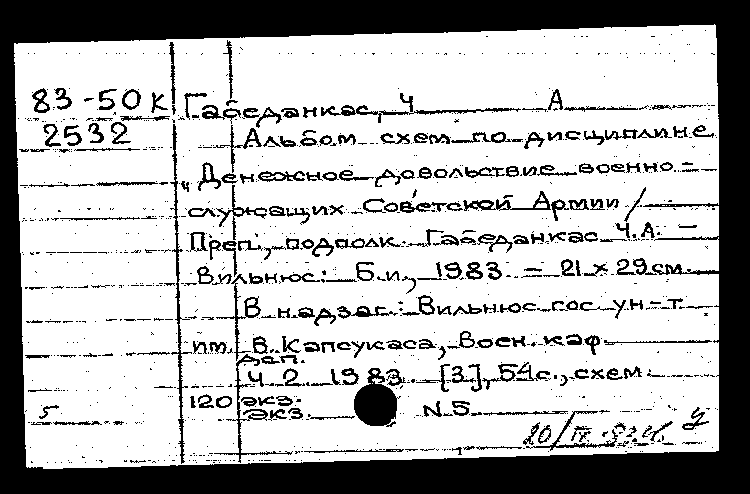 83-50к Габеданкас, Ч А
2532 Альбом схем по дисциплине
„Денежное довольствие военно-
служащих Советской Армии /
Преп., подполк. Габеданкас Ч.А. –
Вильнюс: Б.и., 1983. – 21 х 29 см.
В надзаг.: Вильнюс. гос. ун-т
им. В. Капсукаса, Воен. каф.
Деп.
Ч 2 1983. [3], 54 с., схем.
120 экз.
5 экз. N 5
20/IV-83г.